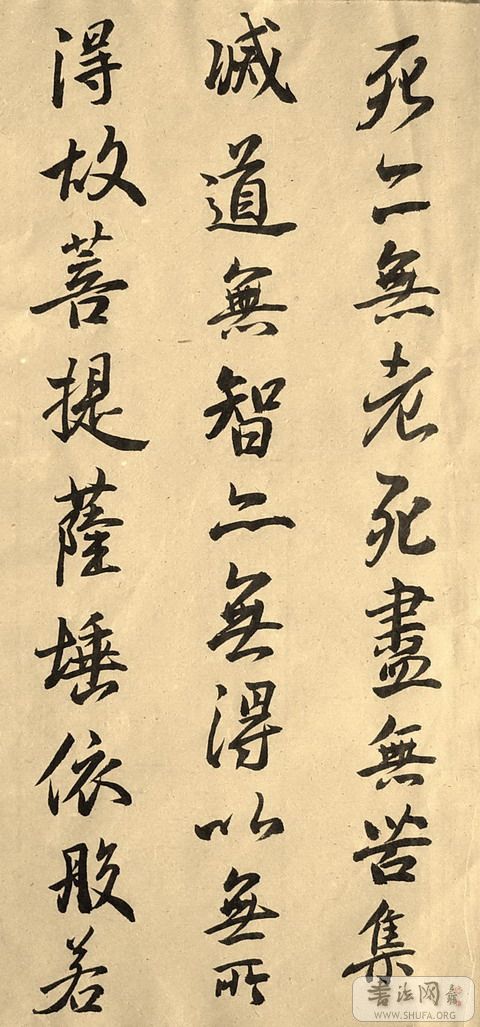 死亦無老死盡無苦集
滅道無智亦無得以無所
得故菩提薩埵依般若
書法网
WWW.SHUFA.ORG